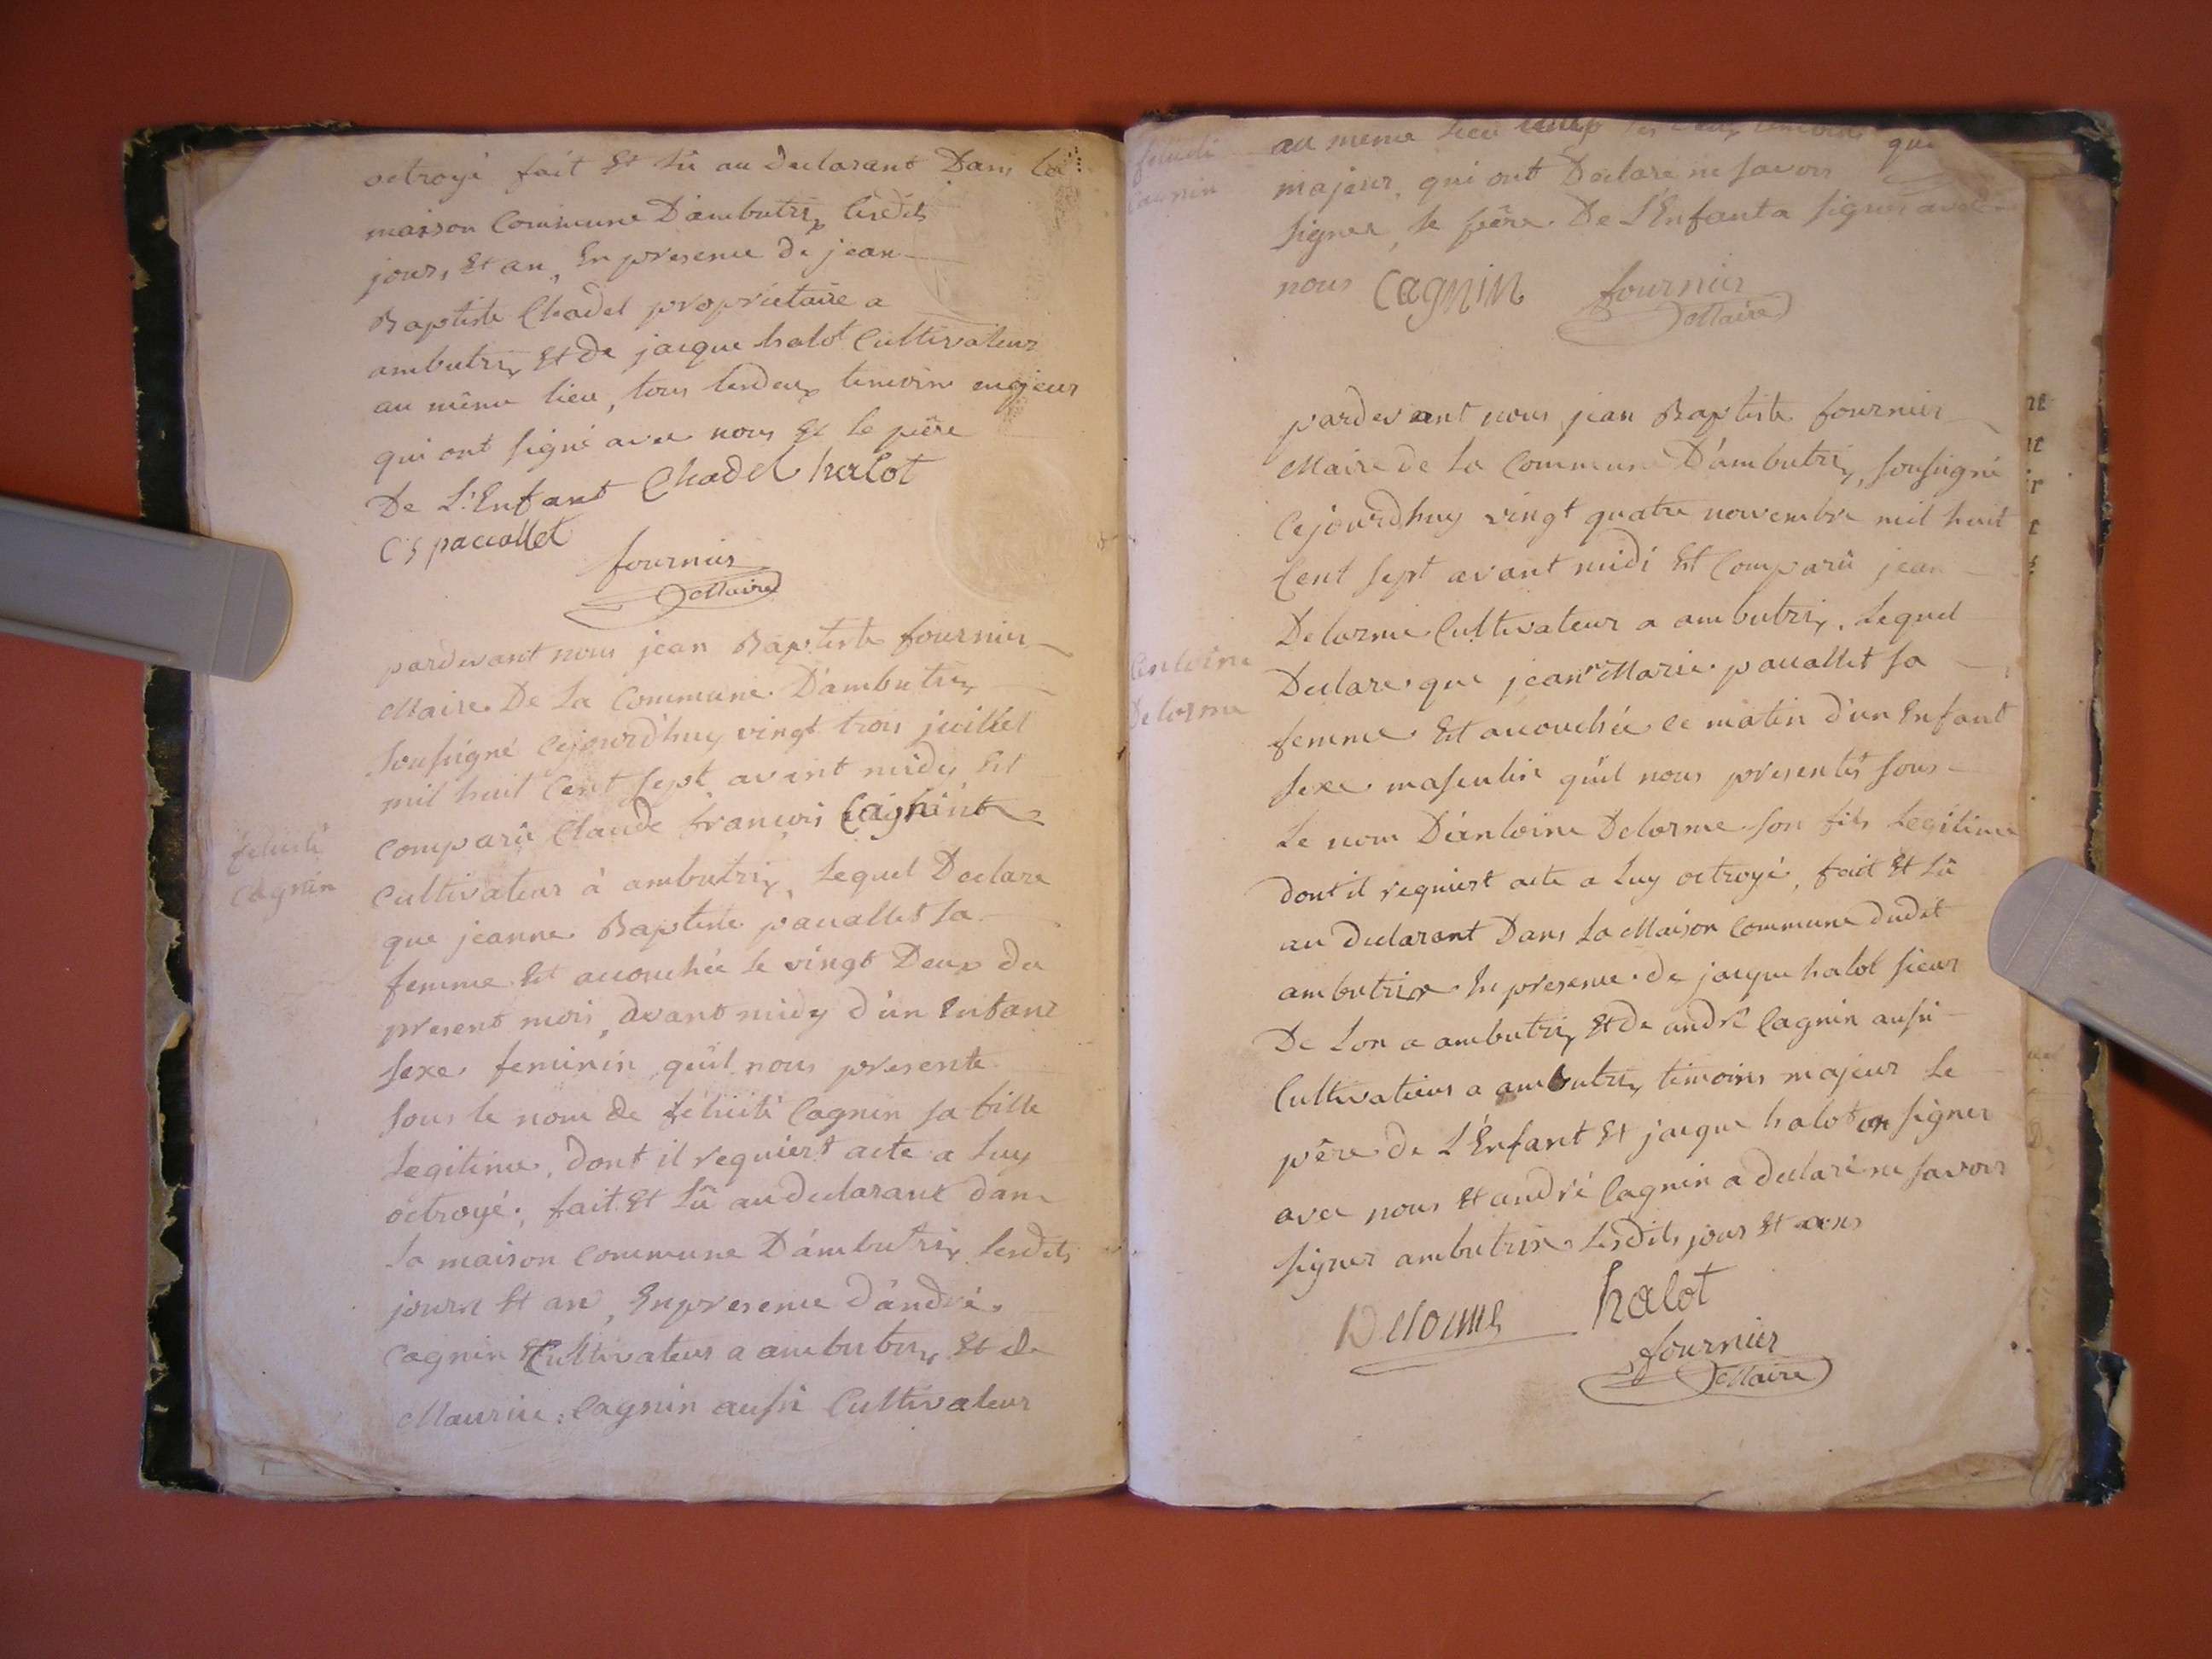 octroyé fait Et Lû au declarant Dans la
maison Commune D'ambutrix lesdits
jours, Et an, En presence de jean
Baptiste Chadel proprietaire a
ambutrix Et de jacque halot Cultivateur
au même lieu, tous lesdeux temoins majeur
qui ont signé avec nous Et le père
De L'Enfant Chadel halot
pacallet
fournier
Maire
pardevant nous jean Baptiste fournier
Maire De La Commune D'ambutrix
soussigné Cejourd'huy vingt trois juillet
mil huit Cent sept avant midy Est
Comparû Claude francois Cagnin
felicité
Cagnin
Cultivateur à ambutrix, Lequel Declare
que jeanne Baptiste pacallet sa
femme Est acouchée le vingt Deux du
present mois, avant midy d'un Enfant
sexe feminin qu'il nous presente
sous le nom de félicité Cagnin sa fille
Legitime, dont il requiert acte a Luy
octroyé, fait Et Lû au declarant dans
la maison Commune D'ambutrix lesdits
jours Et an, En presence d'andré
Cagnin Cultivateur a ambutrix Et de
Maurice Cagnin aussi Cultivateur
felicité
Cagnin
au meme lieu tous les deux temoins
majeur, qui ont Declare ne savoir
signer, le père De L'Enfant a signé avec
nous Cagnin fournier
Maire
pardevant nous jean Baptiste fournier
Maire de La Commune D'ambutrix, soussigné
Cejourdhuy vingt quatre novembre mil huit
Cent sept avant midi Est Comparû jean
Delorme Cultivateur a ambutrix, Lequel
Declare que jeanne Marie pacallet sa
antoine
Delorme
femme Est acouchée ce matin d'un Enfant
sexe masculin qu'il nous presente sous
Le nom D'antoine Delorme son fils Legitime
dont il requiert acte a Luy octroyé, fait Et Lû
au declarant Dans La Maison Commune dudit
ambutrix En presence de jacque halot sieur
De Lon a ambutrix Et de andré Cagnin aussi
Cultivateur a ambutrix temoins majeur Le
père de L'Enfant Et jacque halot on signer
avec nous Et andré Cagnin a declaré ne savoir
signer ambutrix Lesdits jours Et ans
Delorme halot
fournier
Maire